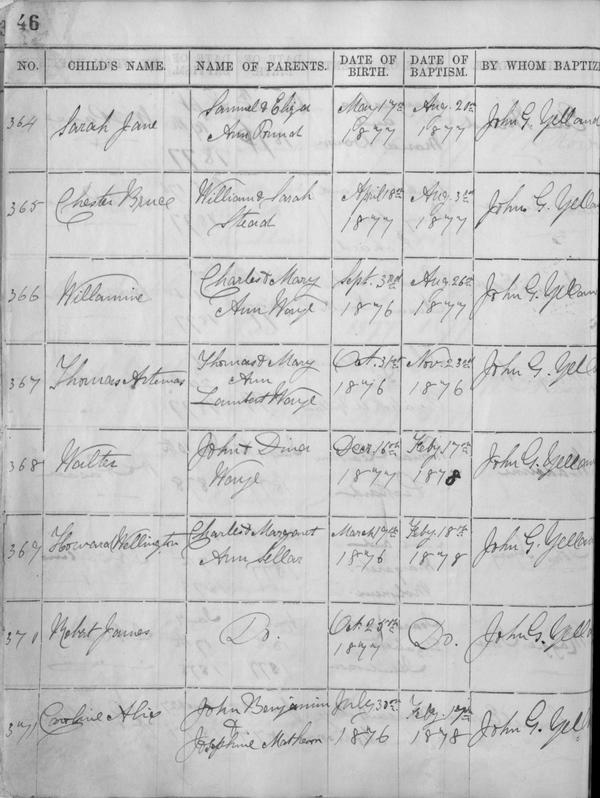 46
NO. CHILD'S NAME. NAME OF PARENTS. DATE OF BIRTH. DATE OF BAPTISM. BY WHOM BAPTIZ
364 Sarah Jane Samuel & Eliza May 17th Aug. 20th John G. Yelland
Ann 1877 1877
365 Chester Bruce William & Sarah April 18th Aug. 3rd John G. Yellan
Stead 1877 1877
366 Willamine Charles & Mary Sept. 3rd Aug 26th John G. Yellan
Ann Waye 1876 1877
367 Thomas Artemas Thomas & Mary Oct. 31st Nov. 23rd John G. Yell
Ann
Lambert Waye 1876 1876
368 Walter John & Dina Decr. 16th Feby. 17th John G. Yellan
Waye 1877 1878
369 Howard Wellington Charles & Margaret March 19th Feby. 18th John G. Yellan
Ann Sellar 1876 1878
371 Robert James Do. Oct. 25th Do. John G. Yell
1877
371 Caroline John Benjamin July 30th Feby. John G. Yell
&
Josephine Matheson 1876 1878